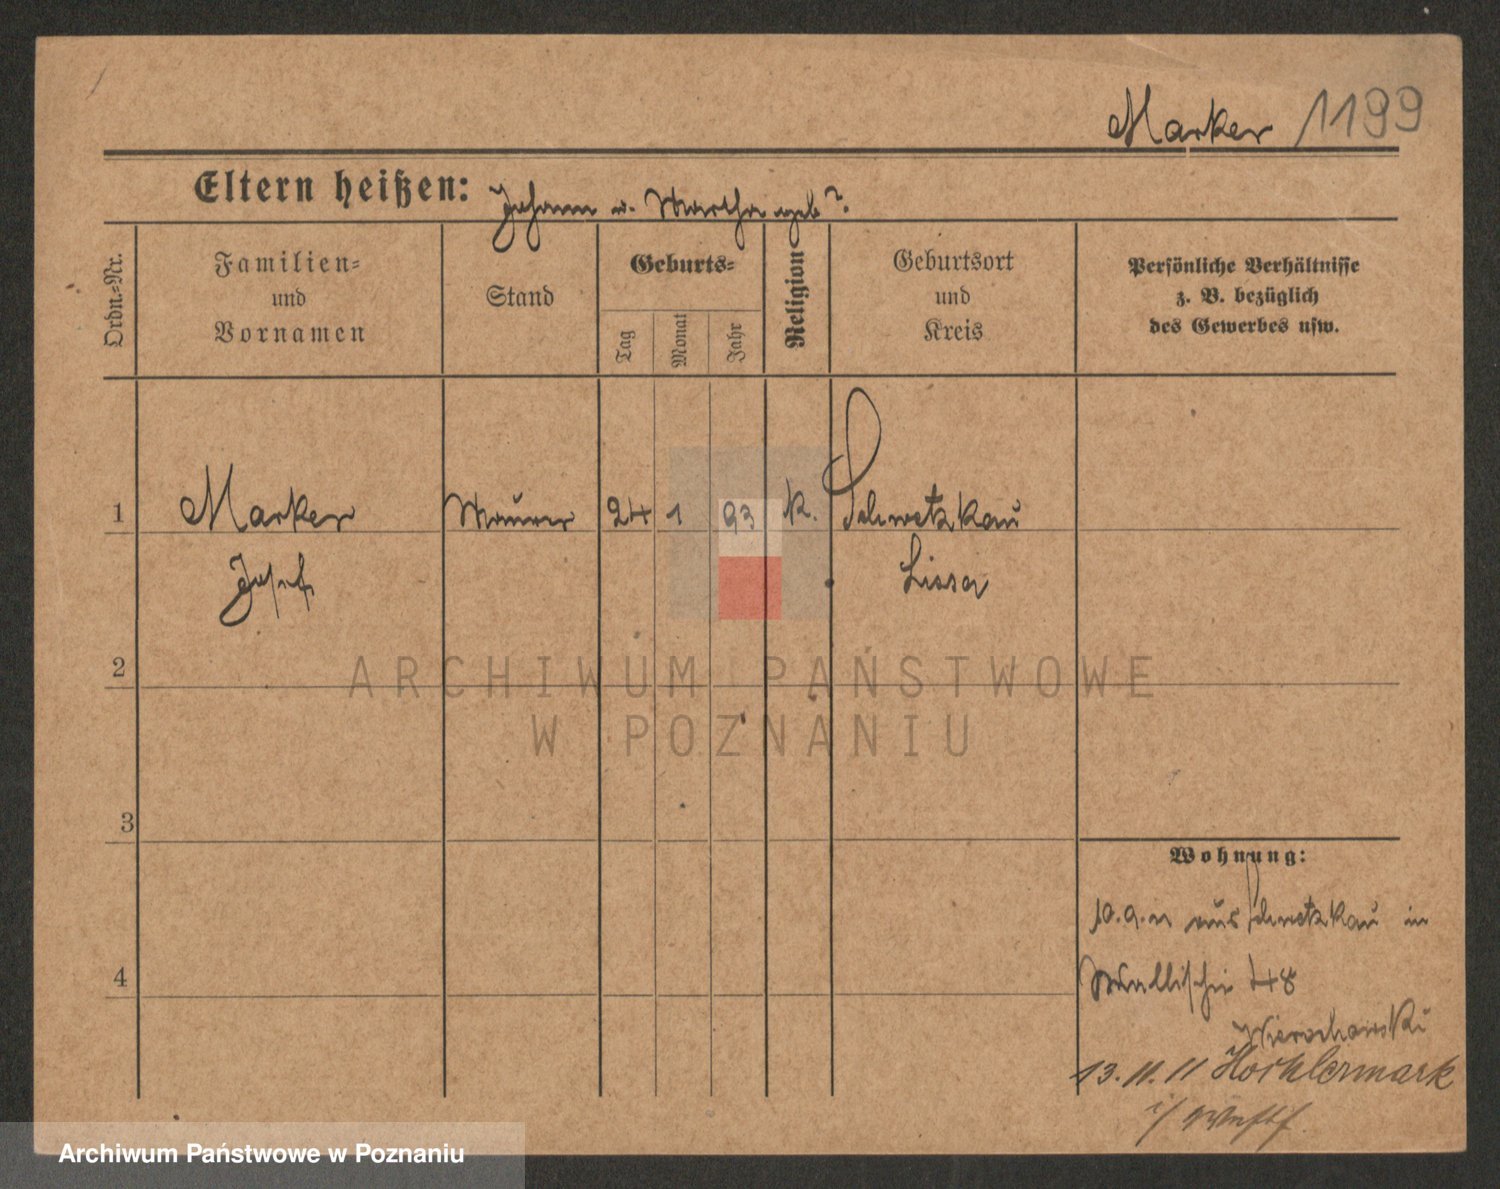 Marker 1199
Eltern heißen: Johann u. Martha geb ?.
Ordn.=Nr.
Familien=
und
Vornamen
Stand
Geburts=
Tag
Monat
Jahr
Religion
Geburtsort
und
Kreis
Persönliche Verhältnisse
z. B. bezüglich
des Gewerbes usw.
1 Marker Maurer 24 1 93 k. Schwetzkau
Josef Lissa
2
ARCHIWUM PAŃSTWOWE
W POZNANIU
3
Wohnung:
10.9.11 aus Schwetzkau in
4 Wallischei 48
13.11.11 Hochlarmark
i/ Westf.
Archiwum Państwowe w Poznaniu